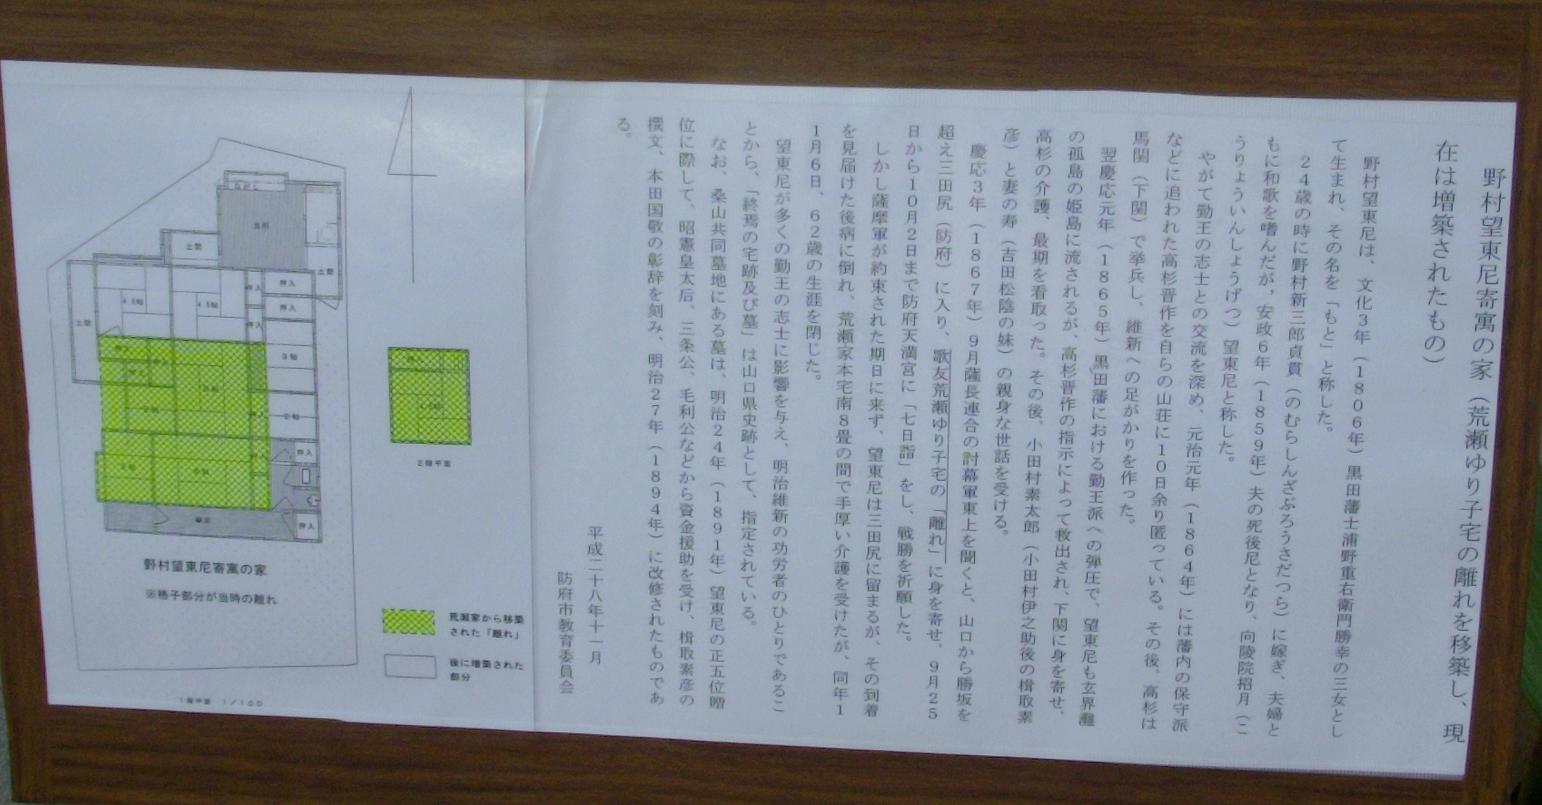 野村望東尼寄寓の家（荒瀬ゆり子宅の離れを移築し、現
在は増築されたもの）
野村望東尼は、文化３年（１８０６年）黒田藩士浦野重右衛門勝幸の三女とし
て生まれ、その名を「もと」と称した。
２４歳の時に野村新三郎貞貫（のむらしんざぶろうさだつら）に嫁ぎ、夫婦と
もに和歌を嗜んだが、安政６年（１８５９年）夫の死後尼となり、向陵院招月（こ
うりょういんしょうげつ）望東尼と称した。
やがて勤王の志士との交流を深め、元治元年（１８６４年）には藩内の保守派
などに追われた高杉晋作を自らの山荘に１０日余り匿っている。その後、高杉は
馬関（下関）で挙兵し、維新への足がかりを作った。
翌慶応元年（１８６５年）黒田藩における勤王派への弾圧で、望東尼も玄界灘
の孤島の姫島に流されるが、高杉晋作の指示によって救出され、下関に身を寄せ、
高杉の介護、最期を看取った。その後、小田村素太郎（小田村伊之助後の楫取素
彦）と妻の寿（吉田松陰の妹）の親身な世話を受ける。
慶応３年（１８６７年）９月薩長連合の討幕軍東上を聞くと、山口から勝坂を
超え三田尻（防府）に入り、歌友荒瀬ゆり子宅の「離れ」に身を寄せ、９月２５
日から１０月２日まで防府天満宮に「七日詣」をし、戦勝を祈願した。
しかし薩摩軍が約束された期日に来ず、望東尼は三田尻に留まるが、その到着
を見届けた後病に倒れ、荒瀬家本宅南８畳の間で手厚い介護を受けたが、同年１
１月６日、６２歳の生涯を閉じた。
望東尼が多くの勤王の志士に影響を与え、明治維新の功労者のひとりであるこ
とから、「終焉の宅跡及び墓」は山口県史跡として、指定されている。
なお、桑山共同墓地にある墓は、明治２４年（１８９１年）望東尼の正五位贈
位に際して、昭憲皇太后、三条公、毛利公などから資金援助を受け、楫取素彦の
撰文、本田国敬の彰辞を刻み、明治２７年（１８９４年）に改修されたものであ
る。
平成二十八年十一月
防府市教育委員会
台所
土間
土間
押入
押入
押入
押入
4.5帖
4.5帖
土間
３帖
２帖
押入
押入
２階平面
野村望東尼寄寓の家
※格子部分が当時の離れ
荒瀬家から移築
された「離れ」
後に増築された
部分
１階平面　１／１００